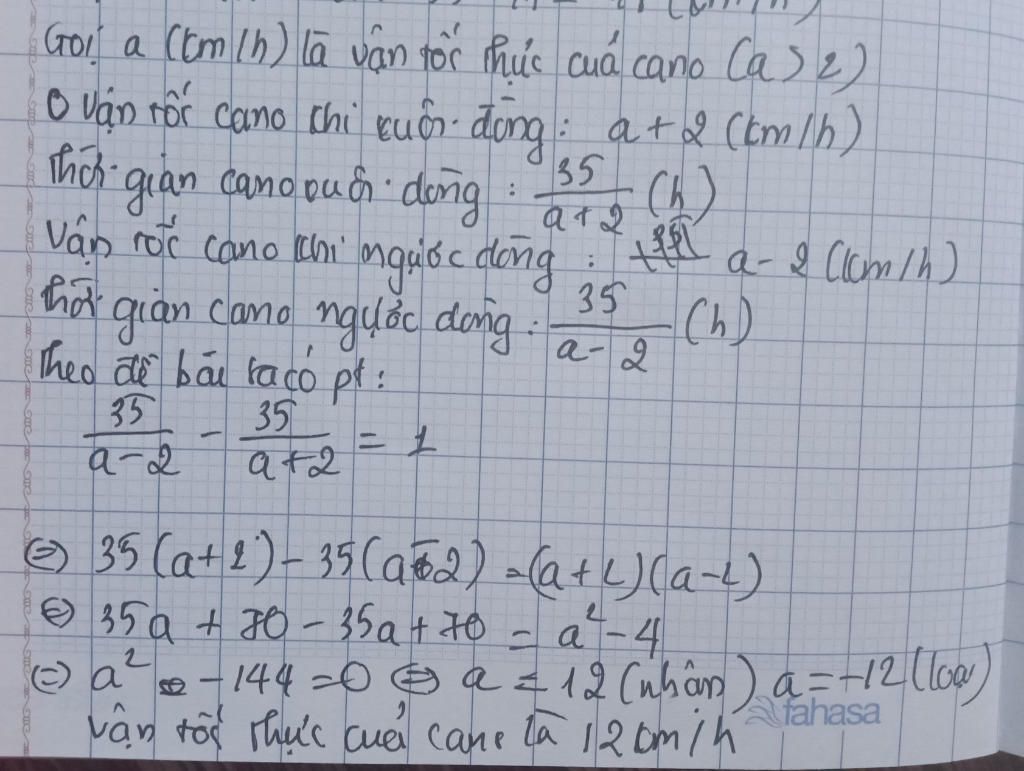 Gọi a (km/h) là vận tốc thực của cano (a > 2)
Vận tốc cano khi xuôi dòng: a + 2 (km/h)
Thời gian cano xuôi dòng: 35/(a+2) (h)
Vận tốc cano khi ngược dòng: a - 2 (km/h)
thời gian cano ngược dòng: 35/(a-2) (h)
Theo đề bài ta có pt:
35/(a-2) - 35/(a+2) = 1
⇔ 35(a+2) - 35(a-2) = (a+2)(a-2)
⇔ 35a + 70 - 35a + 70 = a² - 4
⇔ a² - 144 = 0 ⇔ a = 12 (nhận) a = -12 (loại)
vận tốc thực của cano là 12 km/h
fahasa